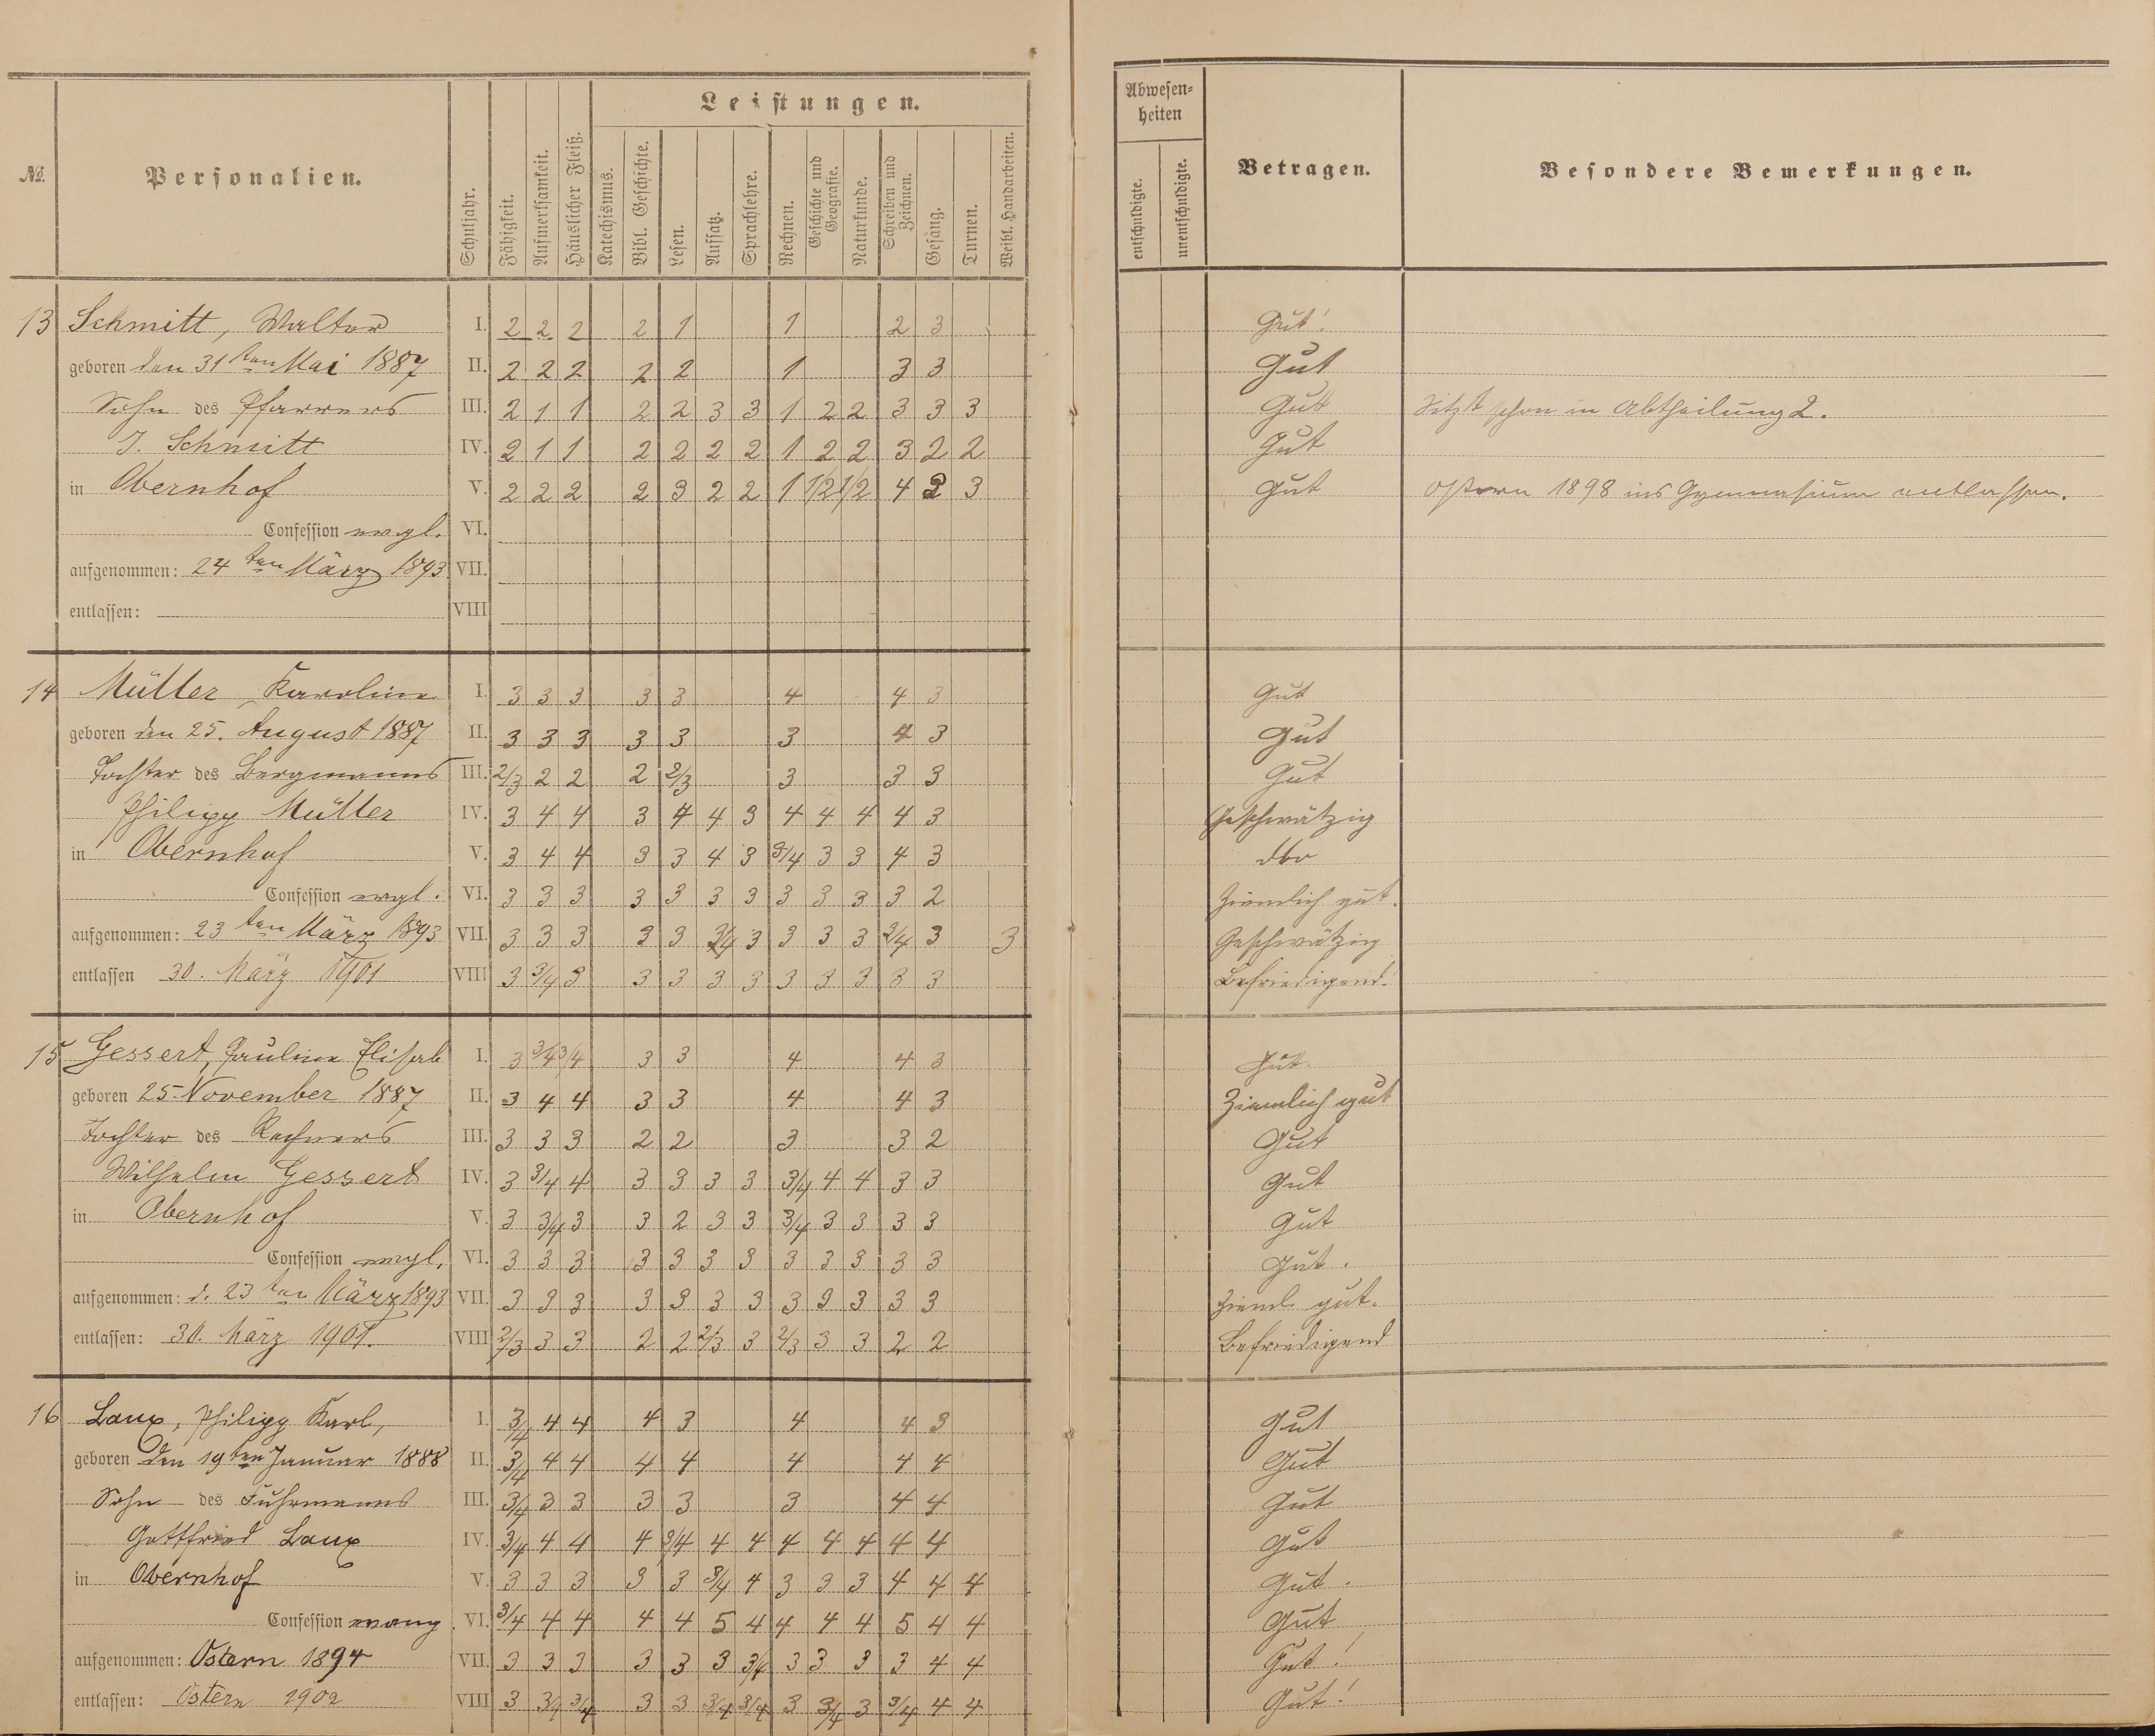 Leistungen.
Abwesen-
heiten
№.
Personalien.
Schuljahr.
Fähigkeit.
Aufmerksamkeit.
Häuslicher Fleiß.
Katechismus.
Bibl. Geschichte.
Lesen.
Aufsatz.
Sprachlehre.
Rechnen.
Geschichte und
Geografie.
Naturkunde.
Schreiben und
Zeichnen.
Gesang.
Turnen.
Weibl. Handarbeiten.
entschuldigte.
unentschuldigte.
Betragen.
Besondere Bemerkungen.
13 Schmitt, Walter I. 2 2 2 2 1 1 2 3 Gut!
geboren den 31ten Mai 1887 II. 2 2 2 2 2 1 3 3 Gut
Sohn des Pfarrers III. 2 1 1 2 2 3 3 1 2 2 3 3 3 Gut Sitzt schon in Abtheilung 2.
J. Schmitt IV. 2 1 1 2 2 2 2 1 2 2 3 2 2 Gut
in Obernhof V. 2 2 2 2 3 2 2 1 1/2 1/2 4 2 3 Gut Ostern 1898 ins Gymnasium entlassen.
Confession evgl. VI.
aufgenommen: 24ten März 1893. VII.
entlassen: VIII
14 Müller, Karoline I. 3 3 3 3 3 4 4 3 Gut
geboren den 25. August 1887 II. 3 3 3 3 3 3 4 3 Gut
Tochter des Bergmanns III. 2/3 2 2 2 2/3 3 3 3 Gut
Philipp Müller IV. 3 4 4 3 4 4 3 4 4 4 4 3 Geschwätzig
in Obernhof V. 3 4 4 3 3 4 3 3/4 3 3 4 3 dto
Confession evgl. VI. 3 3 3 3 3 3 3 3 3 3 3 2 Ziemlich gut.
aufgenommen: 23ten März 1893 VII. 3 3 3 3 3 3/4 3 3 3 3 3/4 3 3 Geschwätzig
entlassen 30. März 1901 VIII 3 3/4 3 3 3 3 3 3 3 3 3 3 Befriedigend!
15 Gessert, Pauline Elisab I. 3 3/4 3/4 3 3 4 4 3 Gut.
geboren 25. November 1887 II. 3 4 4 3 3 4 4 3 Ziemlich gut
Tochter des Rechners III. 3 3 3 2 2 3 3 2 Gut
Wilhelm Gessert IV. 3 3/4 4 3 3 3 3 3/4 4 4 3 3 Gut
in Obernhof V. 3 3/4 3 3 2 3 3 3/4 3 3 3 3 Gut
Confession evgl. VI. 3 3 3 3 3 3 3 3 3 3 3 3 Gut.
aufgenommen: d. 23ten März 1893 VII. 3 3 3 3 3 3 3 3 3 3 3 3 Zieml. gut.
entlassen: 30. März 1901. VIII 2/3 3 3 2 2 2/3 3 2/3 3 3 2 2 Befriedigend
16 Laux, Philipp Karl, I. 3/4 4 4 4 3 4 4 3 Gut
geboren den 19ten Januar 1888 II. 3/4 4 4 4 4 4 4 4 Gut
Sohn des Fuhrmanns III. 3/4 3 3 3 3 3 4 4 Gut
Gottfried Laux IV. 3/4 4 4 4 3/4 4 4 4 4 4 4 4 Gut
in Obernhof V. 3 3 3 3 3 3/4 4 3 3 3 4 4 4 Gut.
Confession evang. VI. 3/4 4 4 4 4 5 4 4 4 4 5 4 4 Gut
aufgenommen: Ostern 1894 VII. 3 3 3 3 3 3 3/4 3 3 3 3 4 4 Gut!
entlassen: Ostern 1902 VIII 3 3/4 3/4 3 3 3/4 3/4 3 3/4 3 3/4 4 4 Gut!